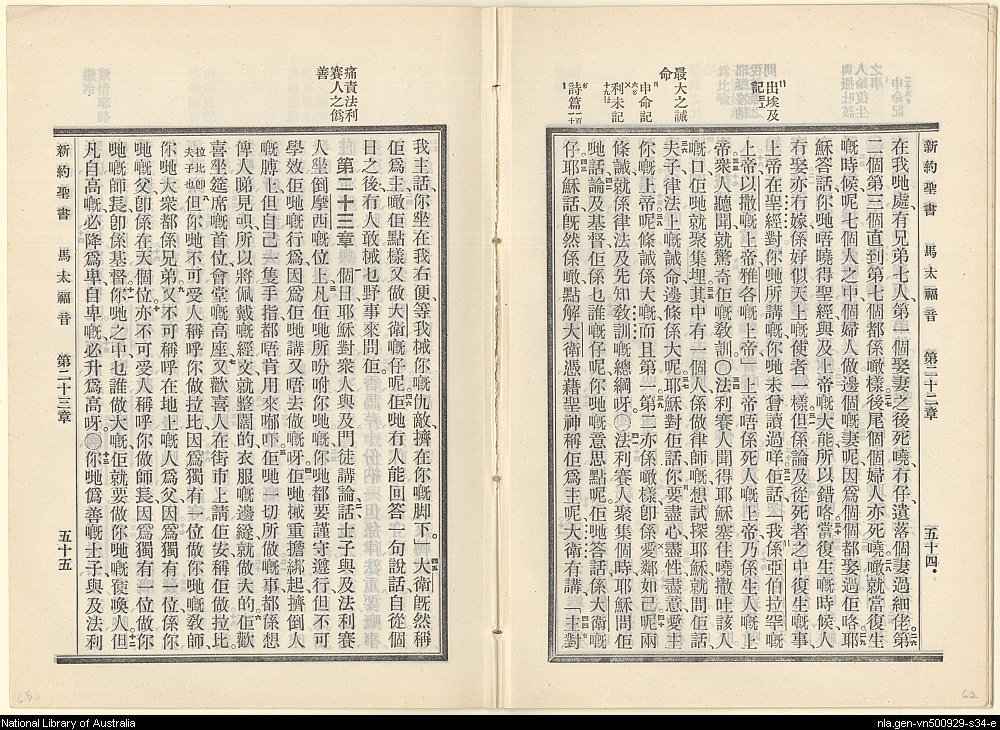 新約聖書 馬太福音 第二十二章 五十四
申命記
出埃及記
最大之誡命
申命記
利未記
詩篇
在我哋處有兄弟七人、第一個娶妻之後死嘵冇仔遺落個妻過細佬、第
二個第三個直到第七個都係噉樣、後尾個婦人亦死嘵、噉就當復生
嘅時候呢、七個人之中、個婦人做邊個嘅妻呢、因爲個個都娶過佢咯、耶
穌答話、你哋唔曉得聖經、與及上帝嘅大能、所以錯咯、當復生嘅時候、人
冇娶亦冇嫁、係好似天上嘅使者一樣、但係論及從死者之中復生嘅事、
上帝在聖經對你哋所講嘅、你哋未曾讀過咩、佢話、我係亞伯拉罕嘅
上帝、以撒嘅上帝、雅各嘅上帝、上帝唔係死人嘅上帝、乃係生人嘅上
帝、衆人聽聞就驚奇佢嘅教訓、〇法利賽人聞得耶穌塞住嘵撒吐該人
嘅口、佢哋就聚集埋、其中有一個人、係做律師嘅、想試探耶穌、就問佢話、
夫子、律法上嘅誡命、邊條係大呢、耶穌對佢話、你要盡心盡性盡意愛主
你嘅上帝呢條誡係大嘅、而且第一、第二亦係噉樣、即係愛鄰如己、呢兩
條誡就係律法及先知教訓嘅總綱呀、〇法利賽人聚集個時、耶穌問佢
哋話、論及基督、佢係乜誰嘅仔呢、你哋嘅意思點呢、佢哋答話、係大衛嘅
仔、耶穌話、旣然係噉、點解大衛憑藉聖神、稱佢爲主呢、大衛有講、主對
痛責法利賽人之僞善
我主話、你坐在我右便、等我械你嘅仇敵、擠在你嘅脚下、大衛旣然稱
佢爲主、噉佢點樣又做大衛嘅仔呢、佢哋冇人能回答一句說話、自從個
日之後、冇人敢械乜野事來問佢、
第二十三章 個日耶穌對衆人與及門徒講論話、士子與及法利賽
人、坐倒摩西嘅位上、凡佢哋所吩咐你哋嘅、你哋都要謹守遵行、但不可
學效佢哋嘅行爲、因爲佢哋講又唔去做嘅呀、佢哋械重擔綁起、擠倒人
嘅膊上、但自己一隻手指都唔肯用來嘟吓、佢哋一切所做嘅事、都係想
俾人睇見唄、所以將佩戴嘅經文就整闊的、衣服嘅邊縫就做大的、佢歡
喜坐筵席嘅首位、會堂嘅高座、又歡喜人在街市上請佢安、稱佢做拉比、
拉比卽夫子也但你哋不可受人稱呼你做拉比、因爲獨有一位做你哋嘅敎師、
你哋大衆都係兄弟、又不可稱呼在地上嘅人爲父、因爲獨有一位係你
哋嘅父、卽係在天個位、亦不可受人稱呼你做師長、因爲獨有一位做你
哋嘅師長、卽係基督、你哋之中乜誰做大嘅、佢就要做你哋嘅使喚人、但
凡自高嘅必降爲卑、自卑嘅必升爲高呀、〇你哋僞善嘅士子與及法利
新約聖書 馬太福音 第二十三章 五十五
National Library of Australia
nla.gen-vn500929-s34-e